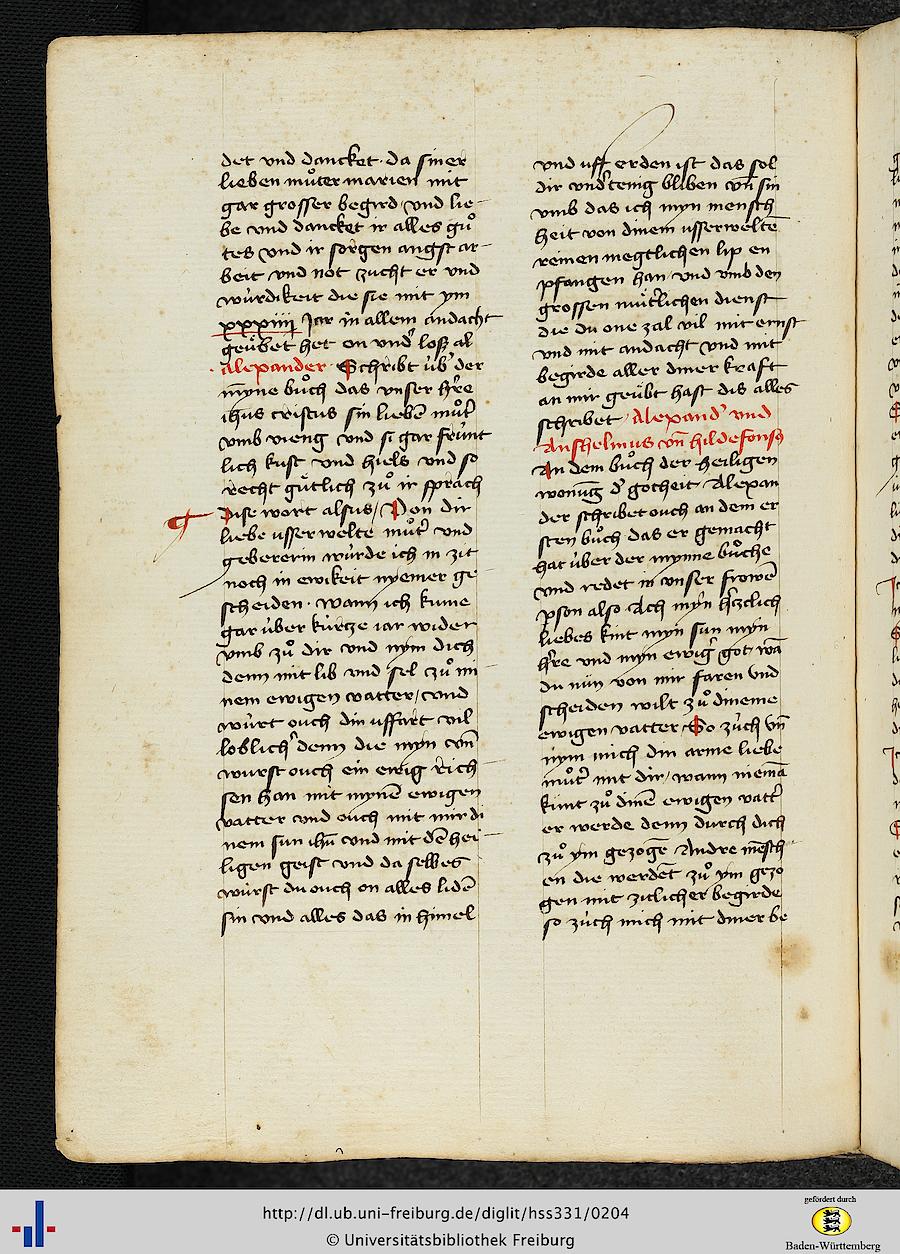 det vnd dancket · da siner
lieben můter marien mit
gar grosser begird / vnd lie-
be vnd dancket ir alles gů
tes vnd ir sorgen angst ar-
beit vnd not zucht er vnd
wúrdikeit die sie mit ym
xxxiiij Jar in allem andacht
geúbet het on vnd' loß al
· Alexander · Schribt úb' der
m̄yne bůch das vnser h're
ihus cristus sin liebē můt'
vmb vieng vnd si gar frúnt
lich kust vnd hiels vnd so
recht gútlich zů ir sprach
dise wort alsus / Von dir
liebe vsserwelte můt' vnd
gebererin wúrde ich in zit
noch in ewikeit nyemer ge-
scheiden · wann ich kume
gar úber kúrtze iar wider
vmb zů dir vnd nym dich
denn mit lib vnd sel zů mi-
nem ewigen vatter / vnd
wúrt ouch din vffart vil
loblich' denn die myn vn̄
wurst ouch ein ewig rich-
sen han mit mynē ewigen
vatter vnd ouch mit mir di
nem sun ihū vnd mit dē hei-
ligen geist vnd da selbes
wúrst du ouch on alles lidē
sin vnd alles das in himel
vnd vff erden ist das sol
dir vnd'tenig bliben vn̄ sin
vmb das ich myn mensch
heit von dinem vsserweltē
reinen megtlichen lip en
pfangen han / vnd vmb den
grossen mútt'lichen dienst
die du one zal vil mit ernst
vnd mit andacht vnd mit
begirde aller diner kraft
an mir geúbt hast dis alles
schribet · Alexand' vnd
Anshelmus vn̄ hildefonsꝯ
An dem bůch der heiligen
wonūg d' gotheit · Alexan
der schribet ouch an dem er
sten bůch das er gemacht
hat úber der mynne bůche
vnd redet in vnser frowē
p̱son also Ach myn h'tzclich
liebes kint myn sun myn
h're vnd myn ewig' got / wā
du nún von mir faren vnd
scheiden wilt zů dineme
ewigen vatter · So zúch vn̄
nym mich din arme liebe
můt' mit dir / wann niemā
kumt zů dinē ewigen vatt'
er werde denn durch dich
zů ym gezoge Andre mēsch
en die werdēt zů ym gezo
gen mit zitlicher begirde
so zúch mich mit diner be
http://dl.ub.uni-freiburg.de/diglit/hss331/0204
© Universitätsbibliothek Freiburg
gefördert durch
Baden-Württemberg